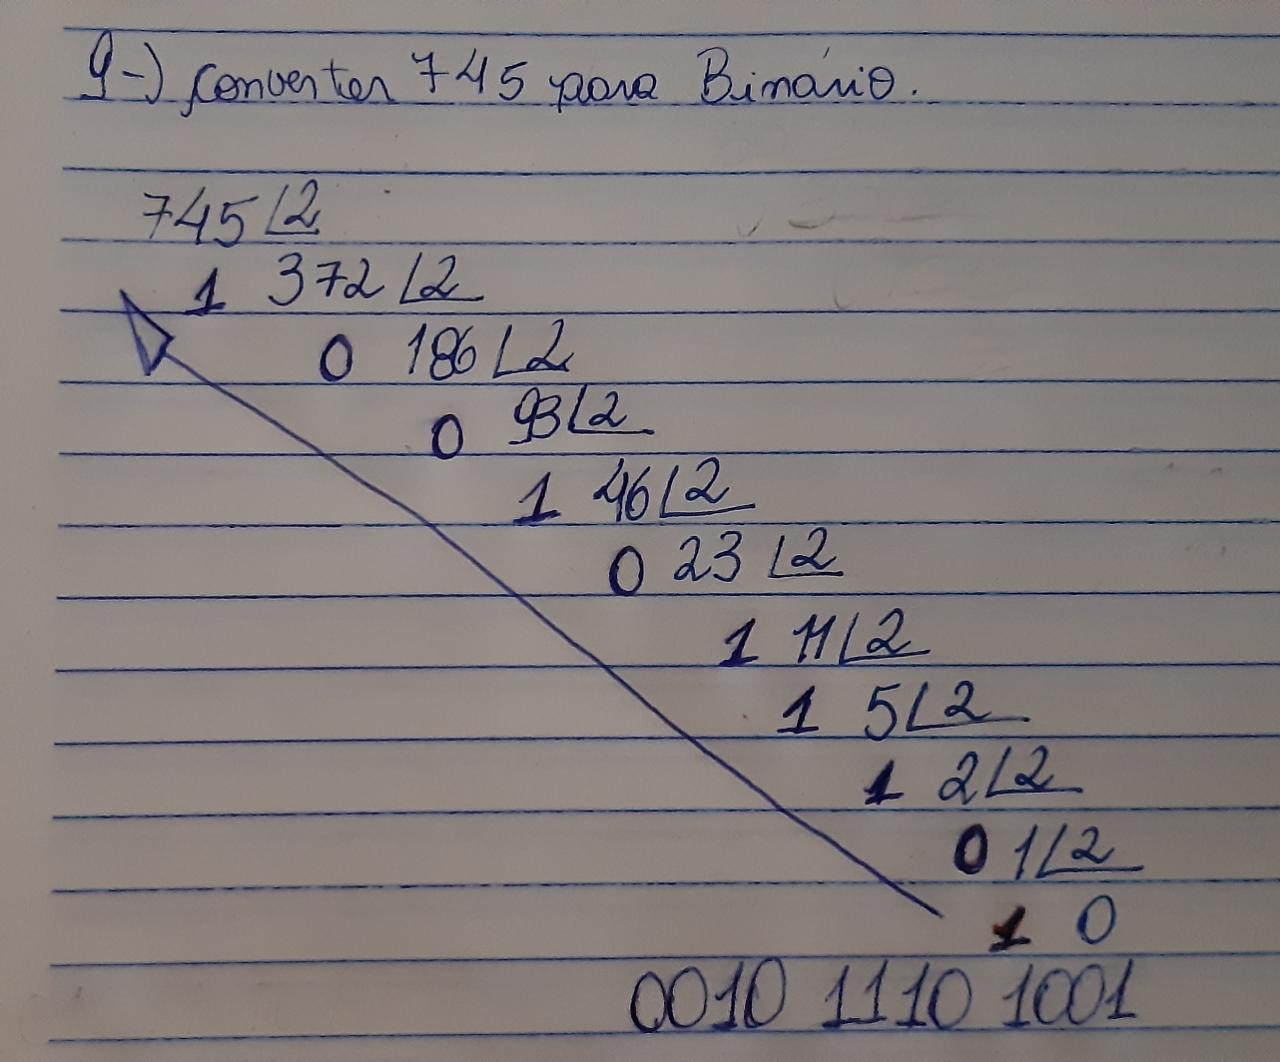 9-) converter 745 para Binário.
745 ⌊2
1 372 ⌊2
0 186 ⌊2
0 93 ⌊2
1 46 ⌊2
0 23 ⌊2
1 11 ⌊2
1 5 ⌊2
1 2 ⌊2
0 1 ⌊2
1 0
0010 1110 1001